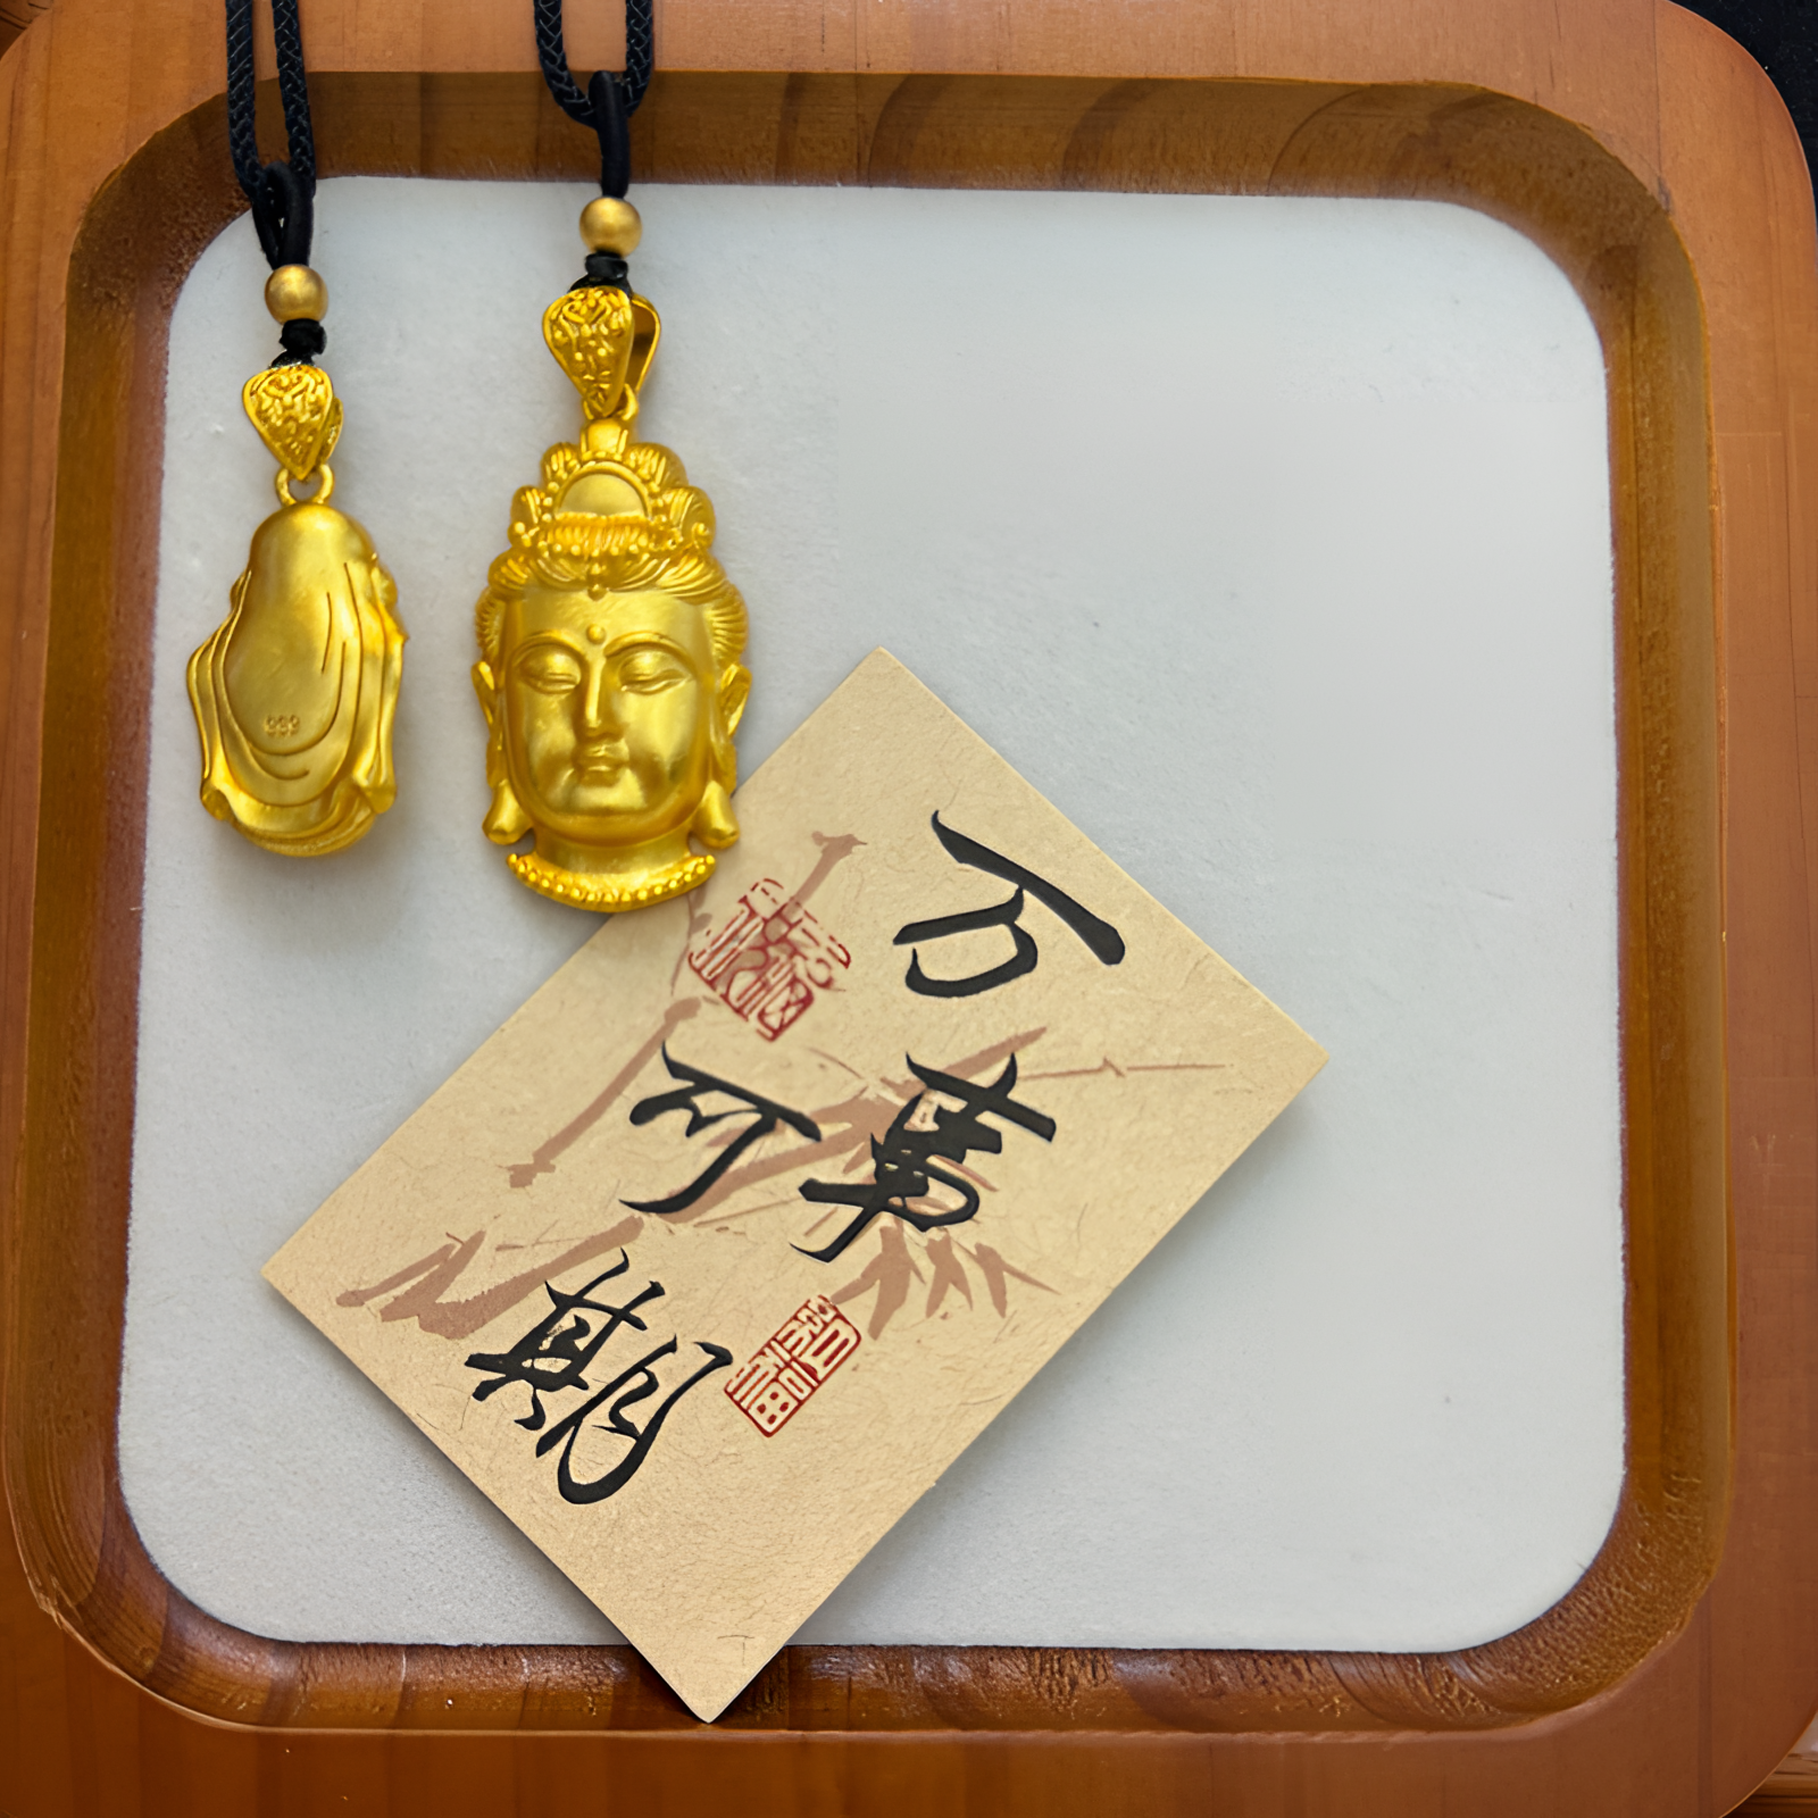 万事
可期
999